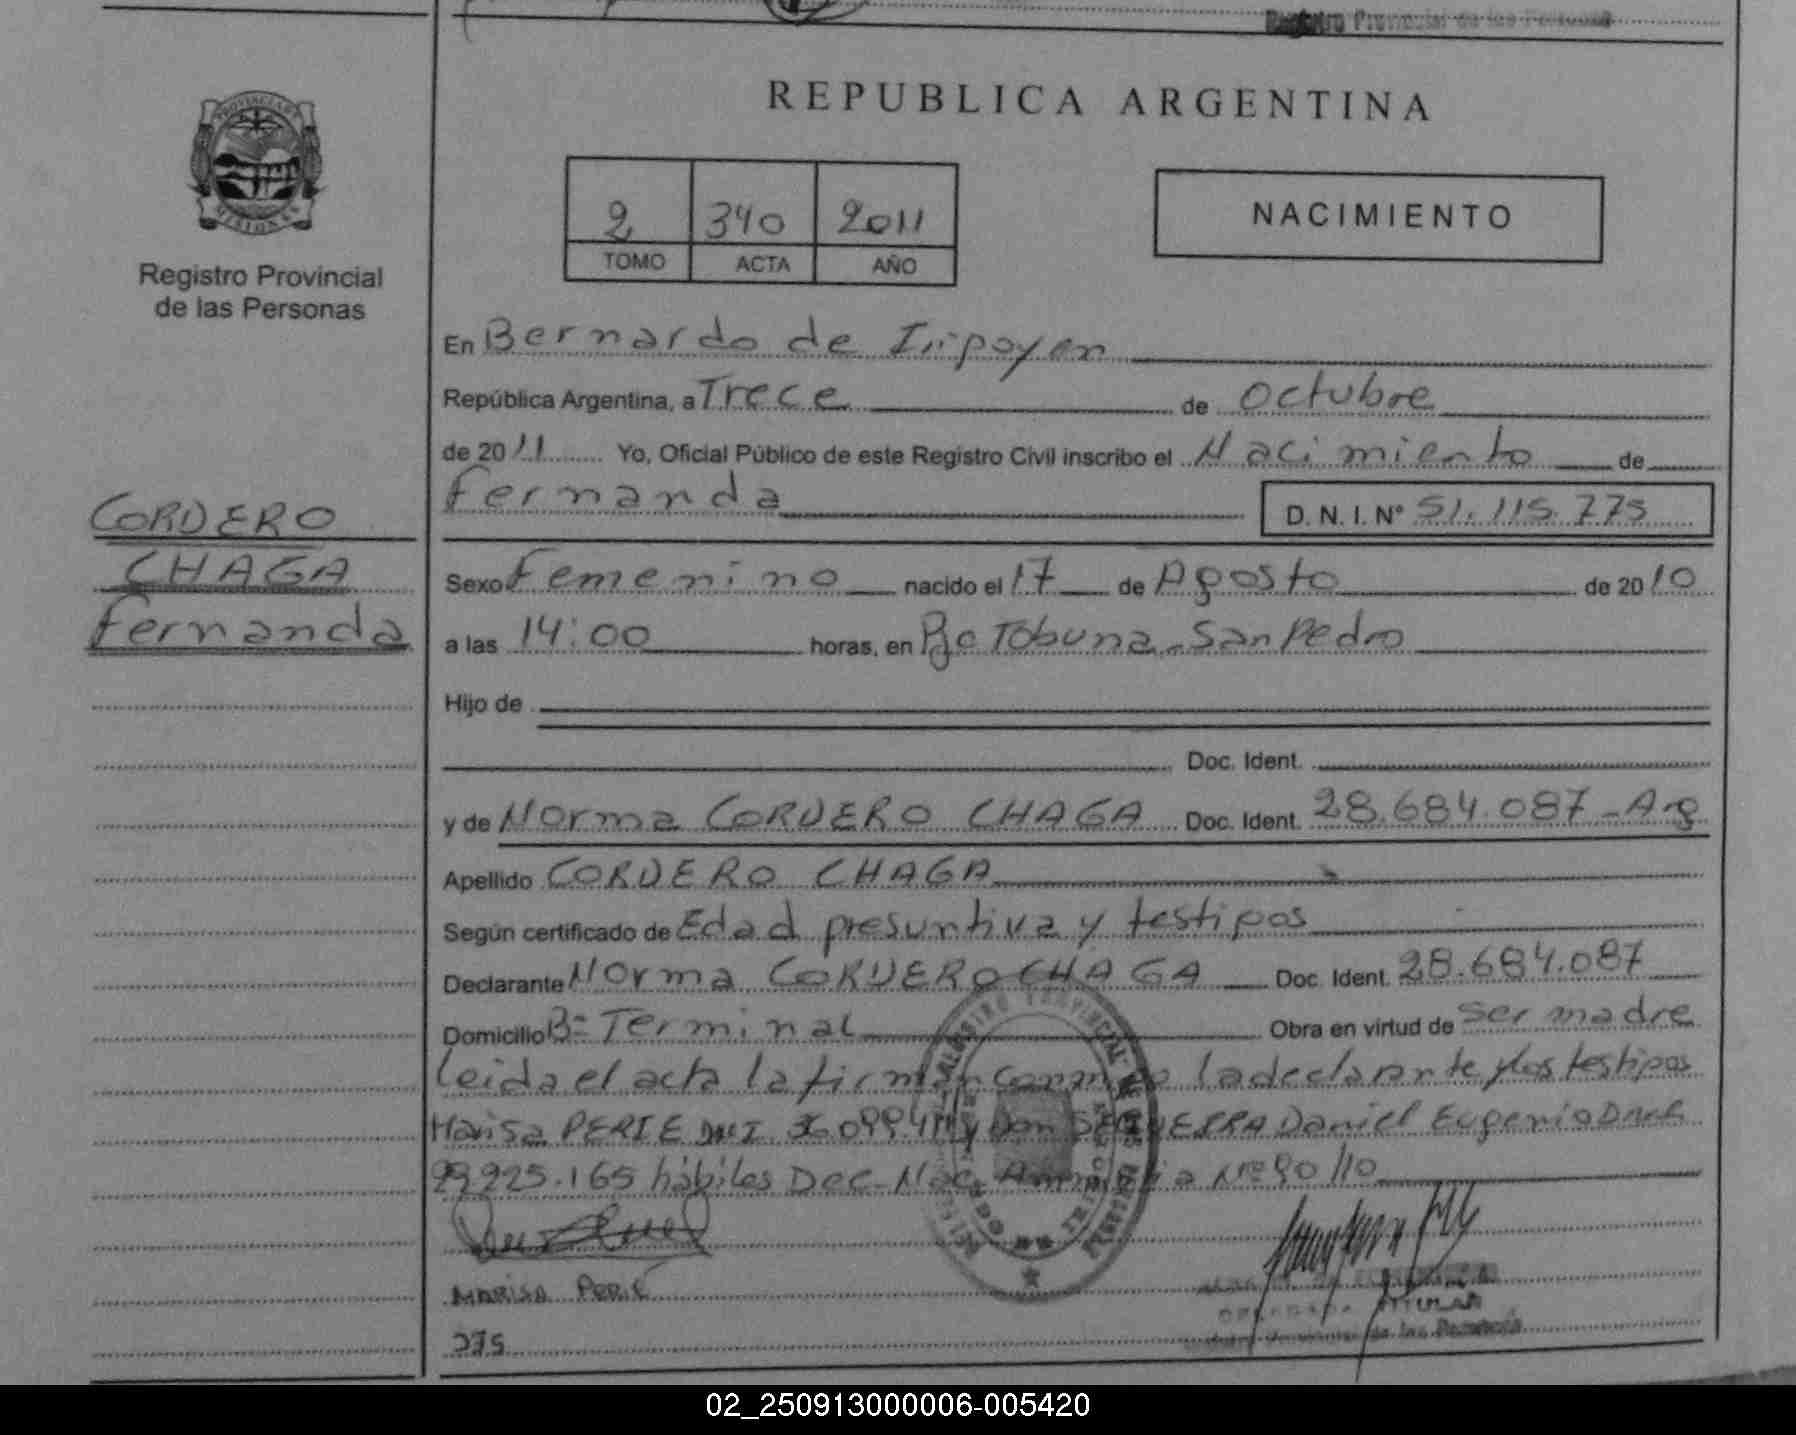 Registro Provincial de las Personas
PROVINCIA DE
MISIONES
Registro Provincial
de las Personas
CORDERO
CHAGA
Fernanda
REPUBLICA ARGENTINA
2 340 2011
TOMO ACTA AÑO
NACIMIENTO
En Bernardo de Irigoyen
República Argentina, a Trece de Octubre
de 2011 Yo, Oficial Público de este Registro Civil inscribo el Nacimiento de
Fernanda D. N. I. N° 51.115.775
Sexo Femenino nacido el 17 de Agosto de 2010
a las 14:00 horas, en Pje Tobuna - San Pedro
Hijo de
Doc. Ident.
y de Norma CORDERO CHAGA Doc. Ident. 28.684.087 - Arg
Apellido CORDERO CHAGA
Según certificado de Edad presuntiva y testigos
Declarante Norma CORDERO CHAGA Doc. Ident. 28.684.087
Domicilio B= Terminal Obra en virtud de ser madre
Leida el acta la firman conmigo la declarante y los testigos
Marisa PERIE DNI y Don Daniel Eugenio DNI
29.925.165 hábiles Dec. Nac. Amnistia Nº 90/10
MARISA PERIE
TITULAR
de las Personas
275
02_250913000006-005420